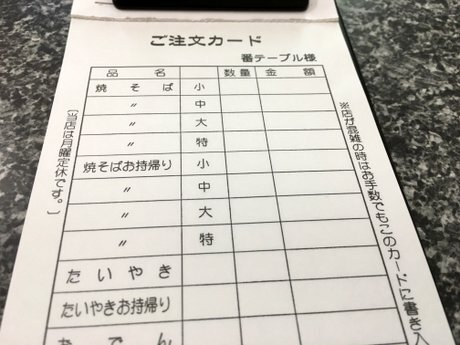 ご注文カード
番テーブル様
品名 数量 金額
焼そば 小
〃 中
〃 大
〃 特
焼そばお持帰り 小
〃 中
〃 大
〃 特
たいやき
たいやきお持帰り
おでん
〔当店は月曜定休です。〕
※店が混雑の時はお手数でもこのカードに書き入